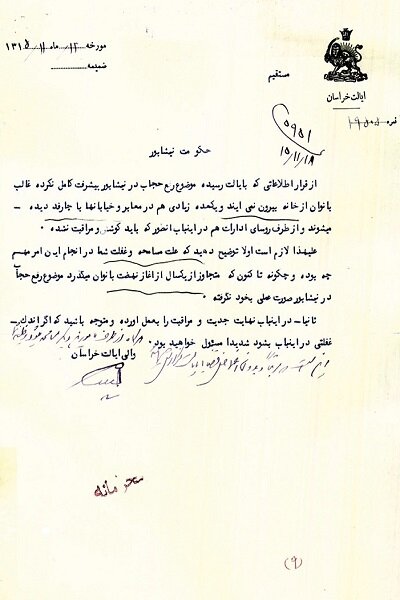 مورخه ۱۲ ماه ۱۱ ۱۳۱۵
ضمیمه
مستقیم
ایالت خراسان
نمره
۵۹۵۱
۱۵/۱۱/۱۸
حکومت نیشابور
از قرار اطلاعاتی که بایالت رسیده موضوع رفع حجاب در نیشابور پیشرفت کامل نکرده غالب
بانوان از خانه بیرون نمی آیند و یکعده زیادی هم در معابر و خیابانها با چارقد دیده -
میشوند و از طرف روسای ادارات هم در اینباب انطور که باید کوشش و مراقبت نشده .
علیهذا لازم است اولا توضیح دهید که علت مسامحه و غفلت شما در انجام این امر مهم
چه بوده و چگونه تا کنون که متجاوز از یکسال از اغاز نهضت بانوان میگذرد موضوع رفع حجاب
در نیشابور صورت عملی بخود نگرفته
ثانیا- در اینباب نهایت جدیت و مراقبت را بعمل اورده و متوجه باشید که اگر اندک -
غفلتی در اینباب بشود شدیدا مسئول خواهید بود.
والی ایالت خراسان
محرمانه
(۹)